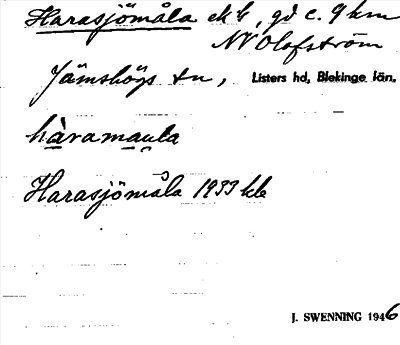 Harasjömåla st G, gd c. 9 km
NV Olofström
Jämshögs sn, Listers hd, Blekinge län.
hàramaula
Harasjömåla 1933 kb
J. SWENNING 1946